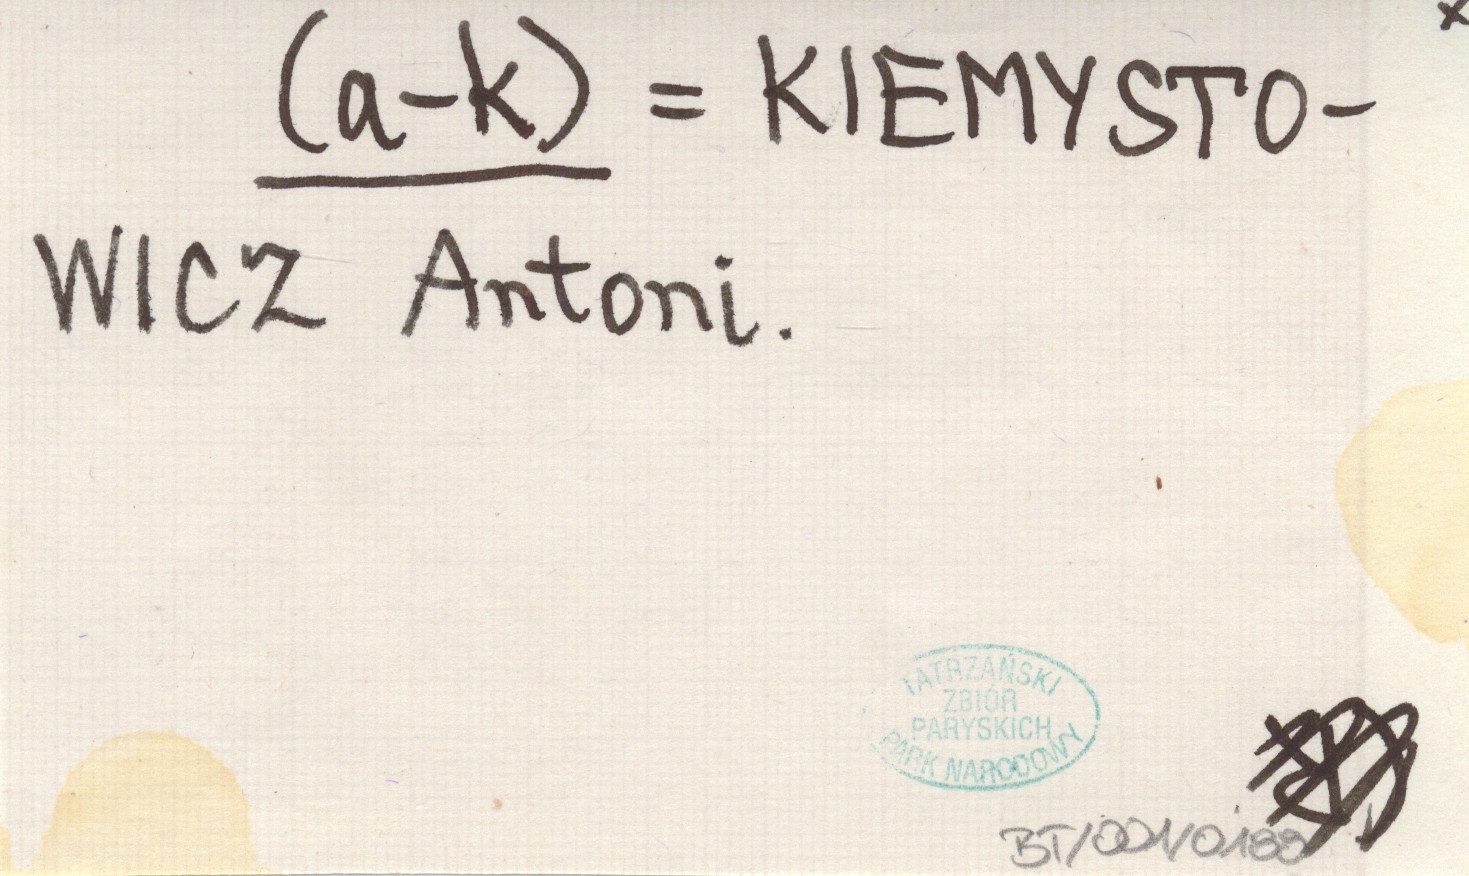 x
(a-k) = KIEMYSTO-
WICZ Antoni.
TATRZAŃSKI
ZBIÓR
PARYSKICH
PARK NARODOWY
BT/001/0188